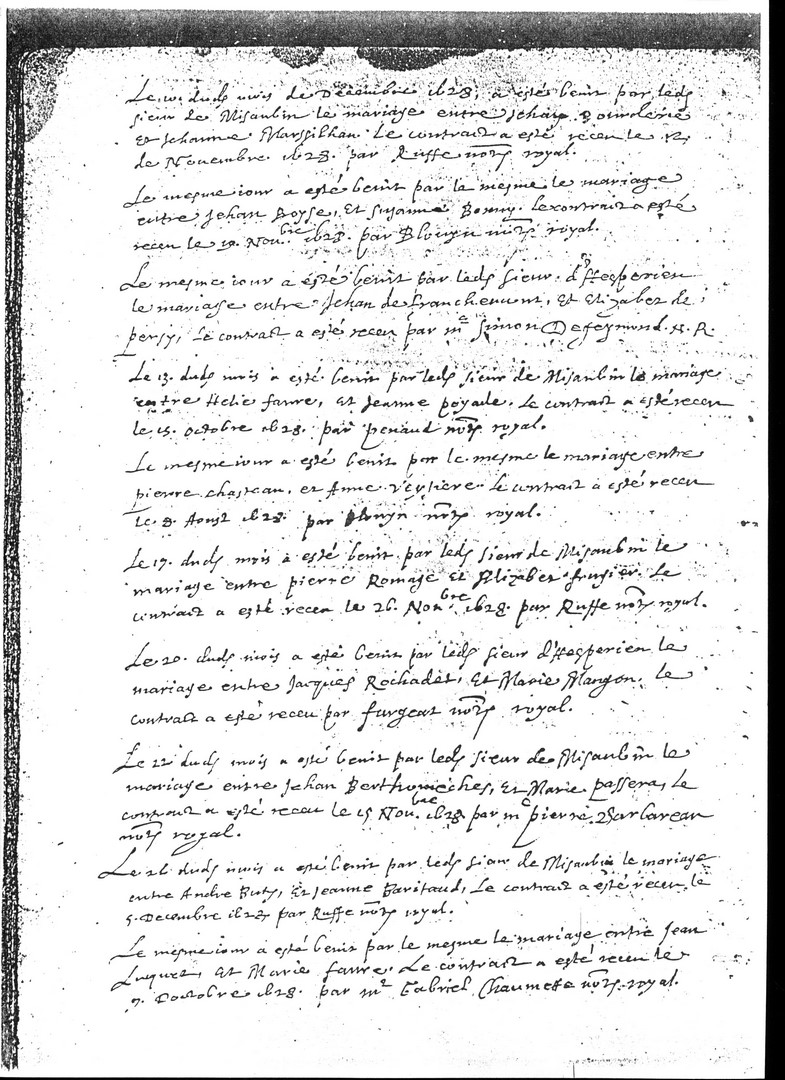 Le 10. dudt mois de Decembre 1628, a esté benit par ledt
sieur de Misaubin le mariage entre Jehan
Et Jehanne Marssilhau. Le contract a esté receu le 12
de Novembre 1628. par Ruffe notre royal.
Le mesme iour a esté benit par le mesme le mariage
entre Jehan Boyse, Et Suzanne Bonny. Le contract a esté
receu le 19. Novbre 1628. par Blouyn notre royal.
Le mesme iour a esté benit par ledt sieur d'Hesperien
le mariage entre Jehan de Et Elizabet de
persy, Le contract a esté receu par me Simon Defeymond. N. R.
Le 13. dudt mois a esté benit par ledt sieur de Misaubin le mariage
entre Helie favre, Et Jeanne poyade. Le contract a esté receu
le 15. Octobre 1628. par penaud notre royal.
Le mesme iour a esté benit par le mesme le mariage entre
pierre chasteau, et Anne Veyssiere. Le contract a esté receu
le 8. Aoust 1628. par Blouyn notre royal.
Le 17. dudt mois a esté benit par ledt sieur de Misaubin le
mariage entre pierre Romage et Elizabet frugier. Le
contract a esté receu le 26. Novbre 1628. par Ruffe notre royal.
Le 20. dudt mois a esté benit par ledt sieur d'Hesperien le
mariage entre Jacques Rochadet, Et Marie Mangon. Le
contract a esté receu par fargeat notre royal.
Le 22 dudt mois a esté benit par ledt sieur de Misaubin le
mariage entre Jehan Berthomeches, Et Marie passera, Le
contract a esté receu le 15 Novbre 1628 par me pierre Barbareau
notre royal.
Le 26 dudt mois a esté benit par ledt sieur de Misaubin le mariage
entre Andre Buts, Et Jeanne Baritaud, Le contract a esté receu le
5. Decembre 1628 par Ruffe notre royal.
Le mesme iour a esté benit par le mesme le mariage entre Jean
Luquet, Et Marie favre. Le contract a esté receu le
7. Doctobre 1628. par me Gabriel Chaumette notre royal.